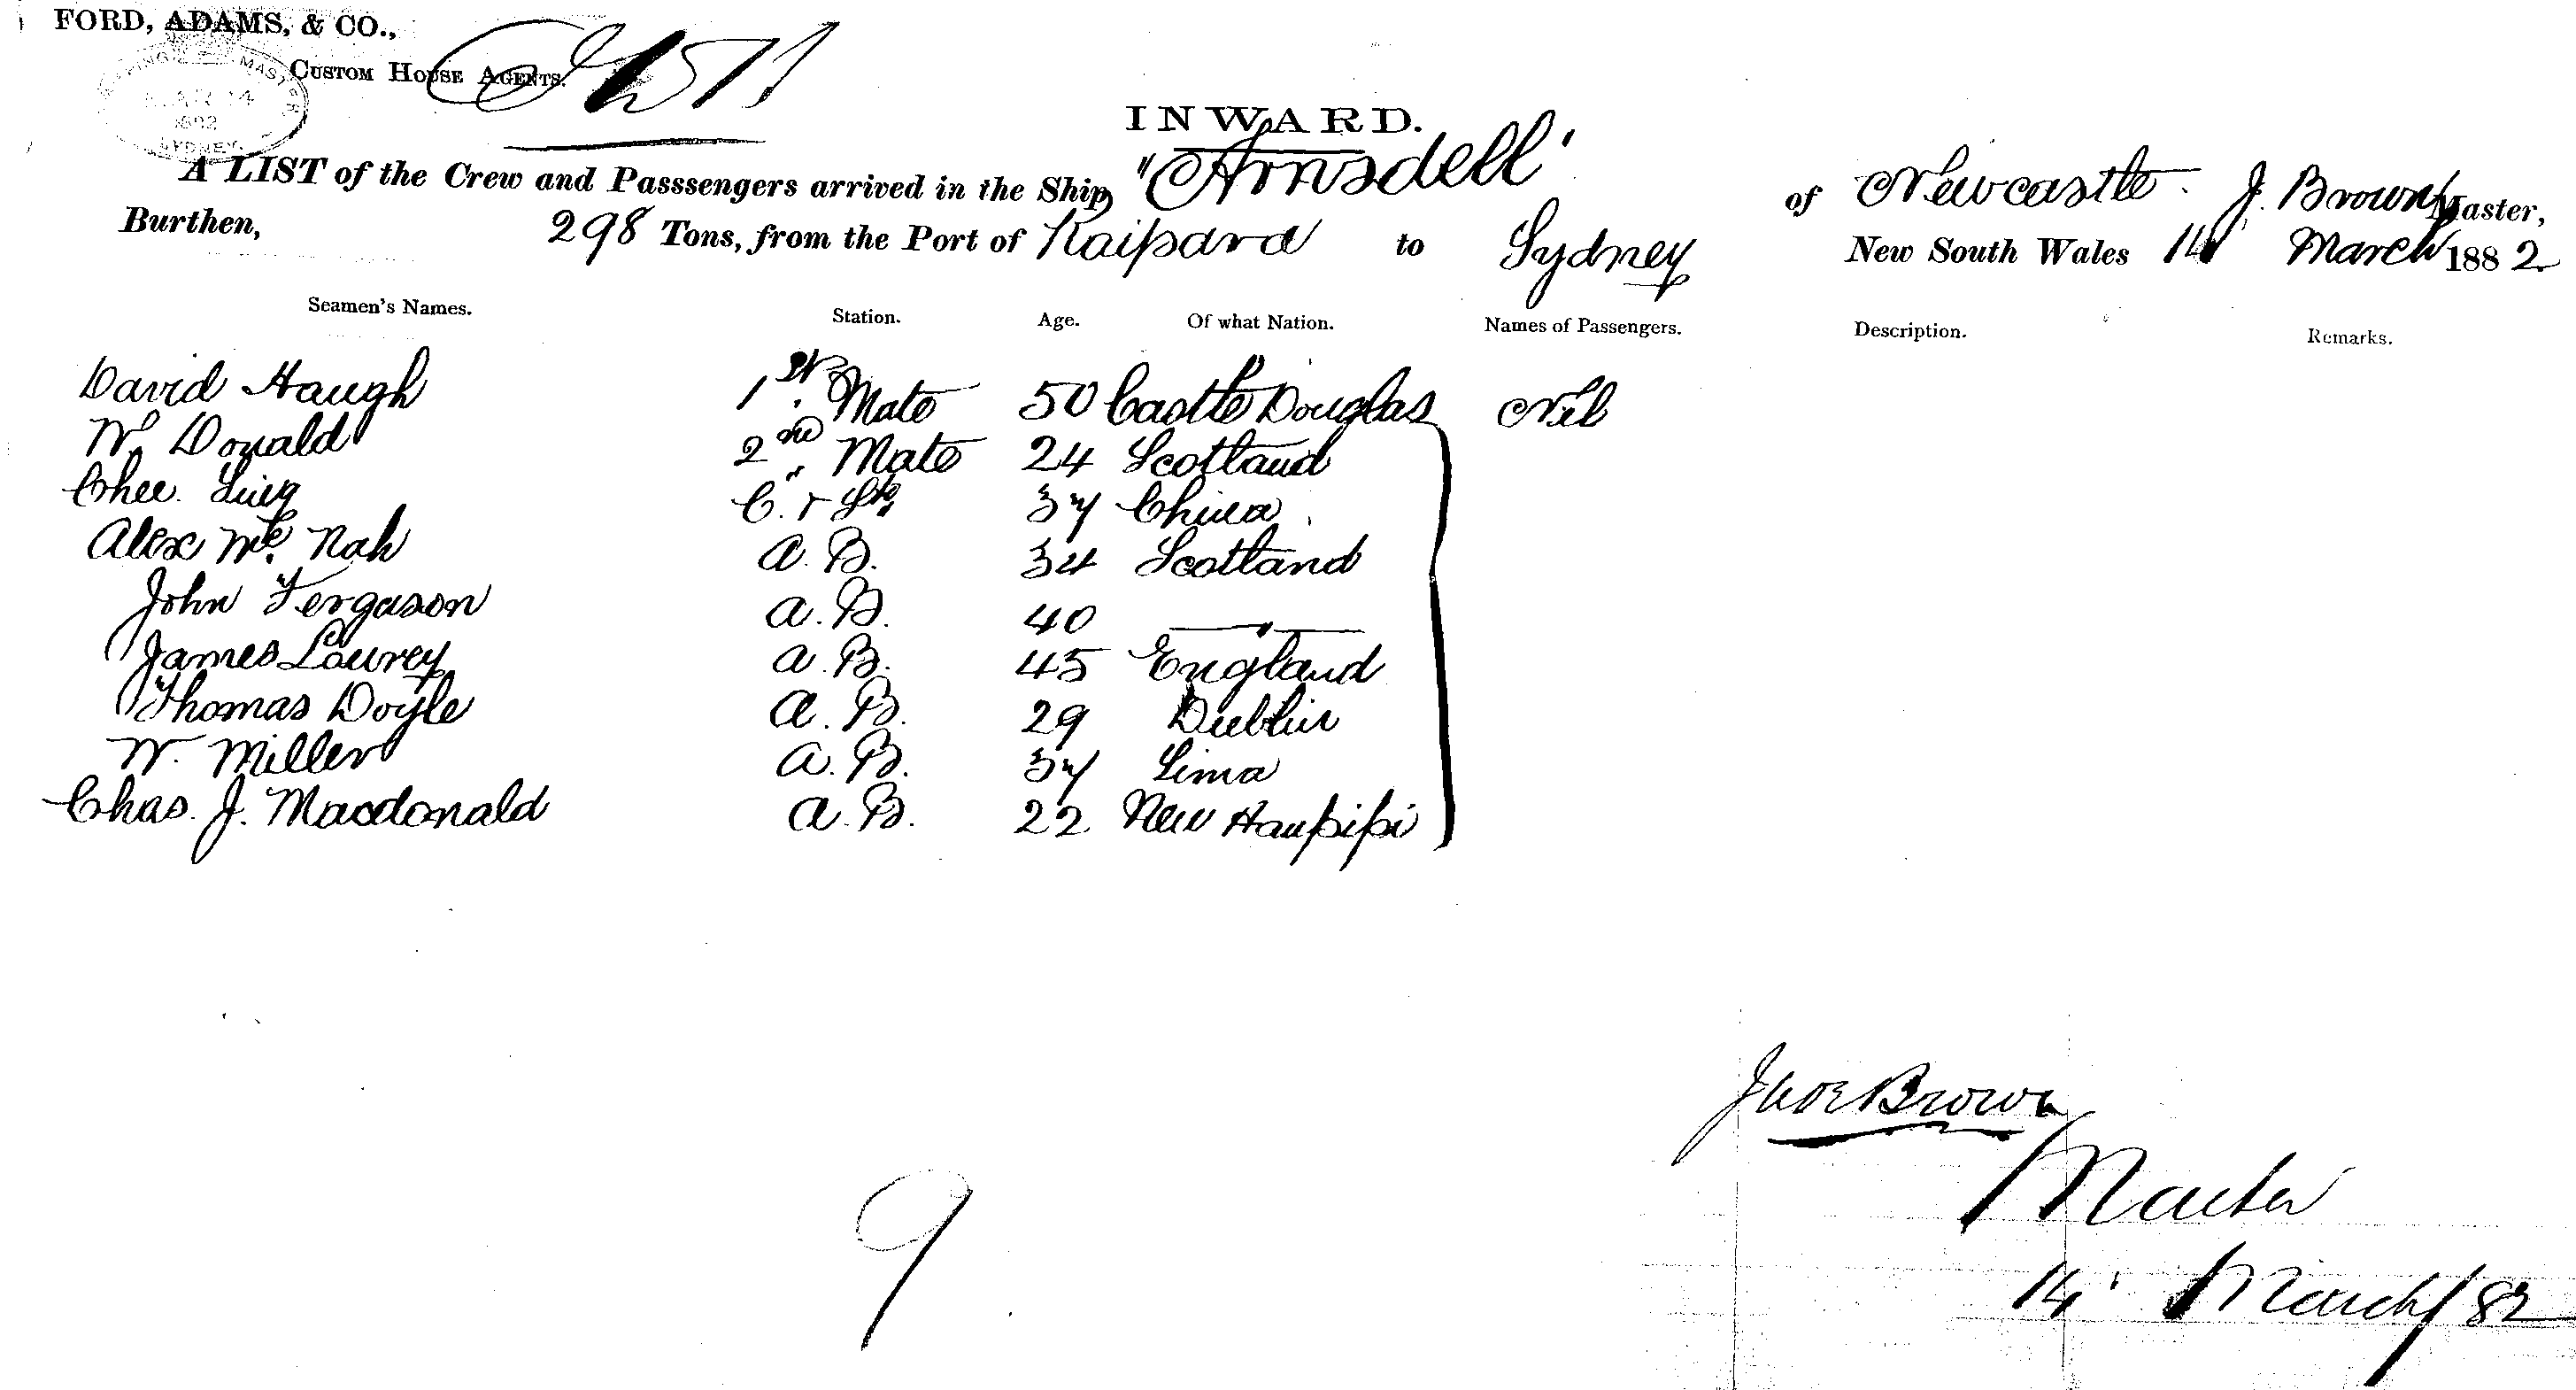 FORD, ADAMS, & CO.,
CUSTOM HOUSE AGENTS.
SHIPPING MASTER
MAR 14
1882
SYDNEY
INWARD.
A LIST of the Crew and Passsengers arrived in the Ship "Arnsdell" of Newcastle. J. Brown Master,
Burthen, 298 Tons, from the Port of Kaipara to Sydney New South Wales 14 March 1882
Seamen's Names. Station. Age. Of what Nation. Names of Passengers. Description. Remarks.
David Haugh 1st. Mate 50 Castle Douglas Nil
Wm Donald 2nd " Mate 24 Scotland
Chee. Ling C. & Std 37 China
Alex Mc. Nah A. B. 34 Scotland
John Fergason A. B. 40 "
James Lourey A. B. 45 England
Thomas Doyle A. B. 29 Dublin
W. Miller A. B. 37 Lima
Chas. J. Macdonald A. B. 22 New Haupipi
Brown
Master
9
14 March/82